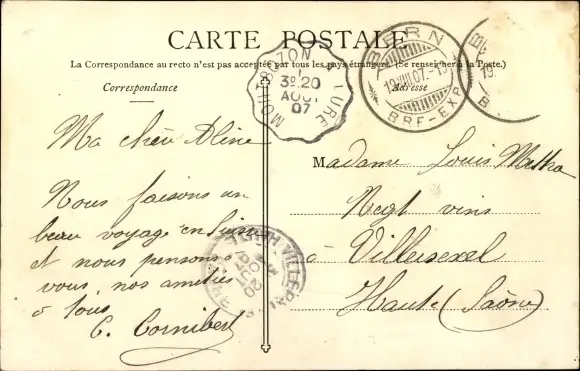 CARTE POSTALE
La Correspondance au recto n'est pas acceptée par tous les pays étrangers. (Se renseigner à la Poste.)
Correspondance
Adresse
MONTBOZON A LURE
3E 20
AOUT
07
BERN
19.VIII.07.-
BRF-EXP.
B
19
B
Ma chère Aline
Nous faisons un
beau voyage en Suisse
et nous pensons à
vous, nos amitiés
à tous
C. Cornibert
Madame Louis
Negt vins
à Villersexel
Haute (Saône)
20
AOUT